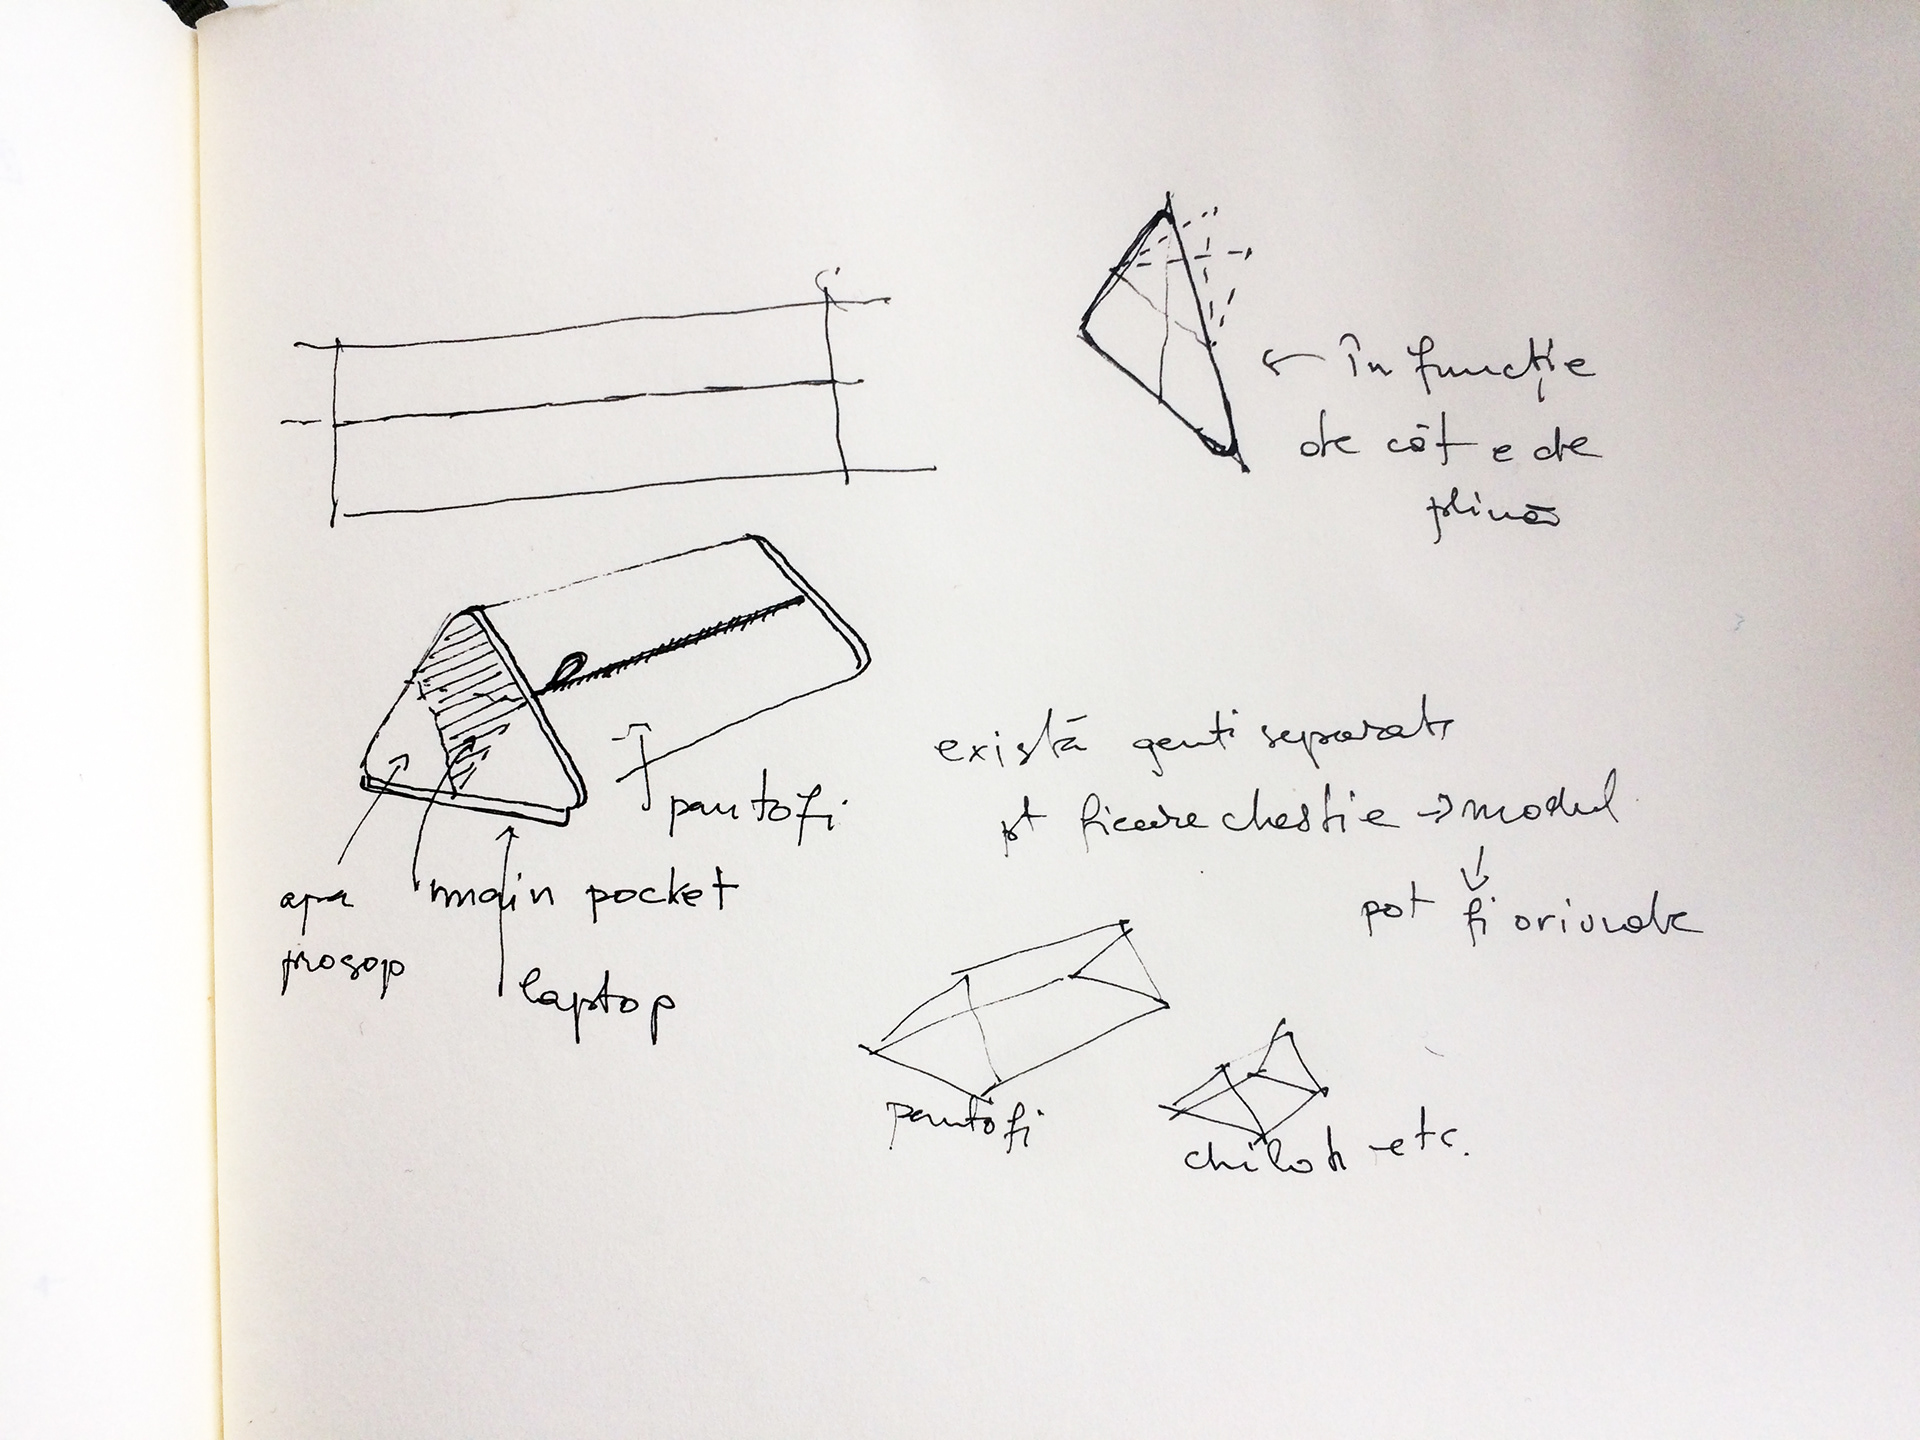 în funcție
de cât e de
plină
pantofi
apa
prosop
main pocket
laptop
există genti separate
pt fiecare chestie → modul
pot fi oriunde
pantofi
chiloti etc.